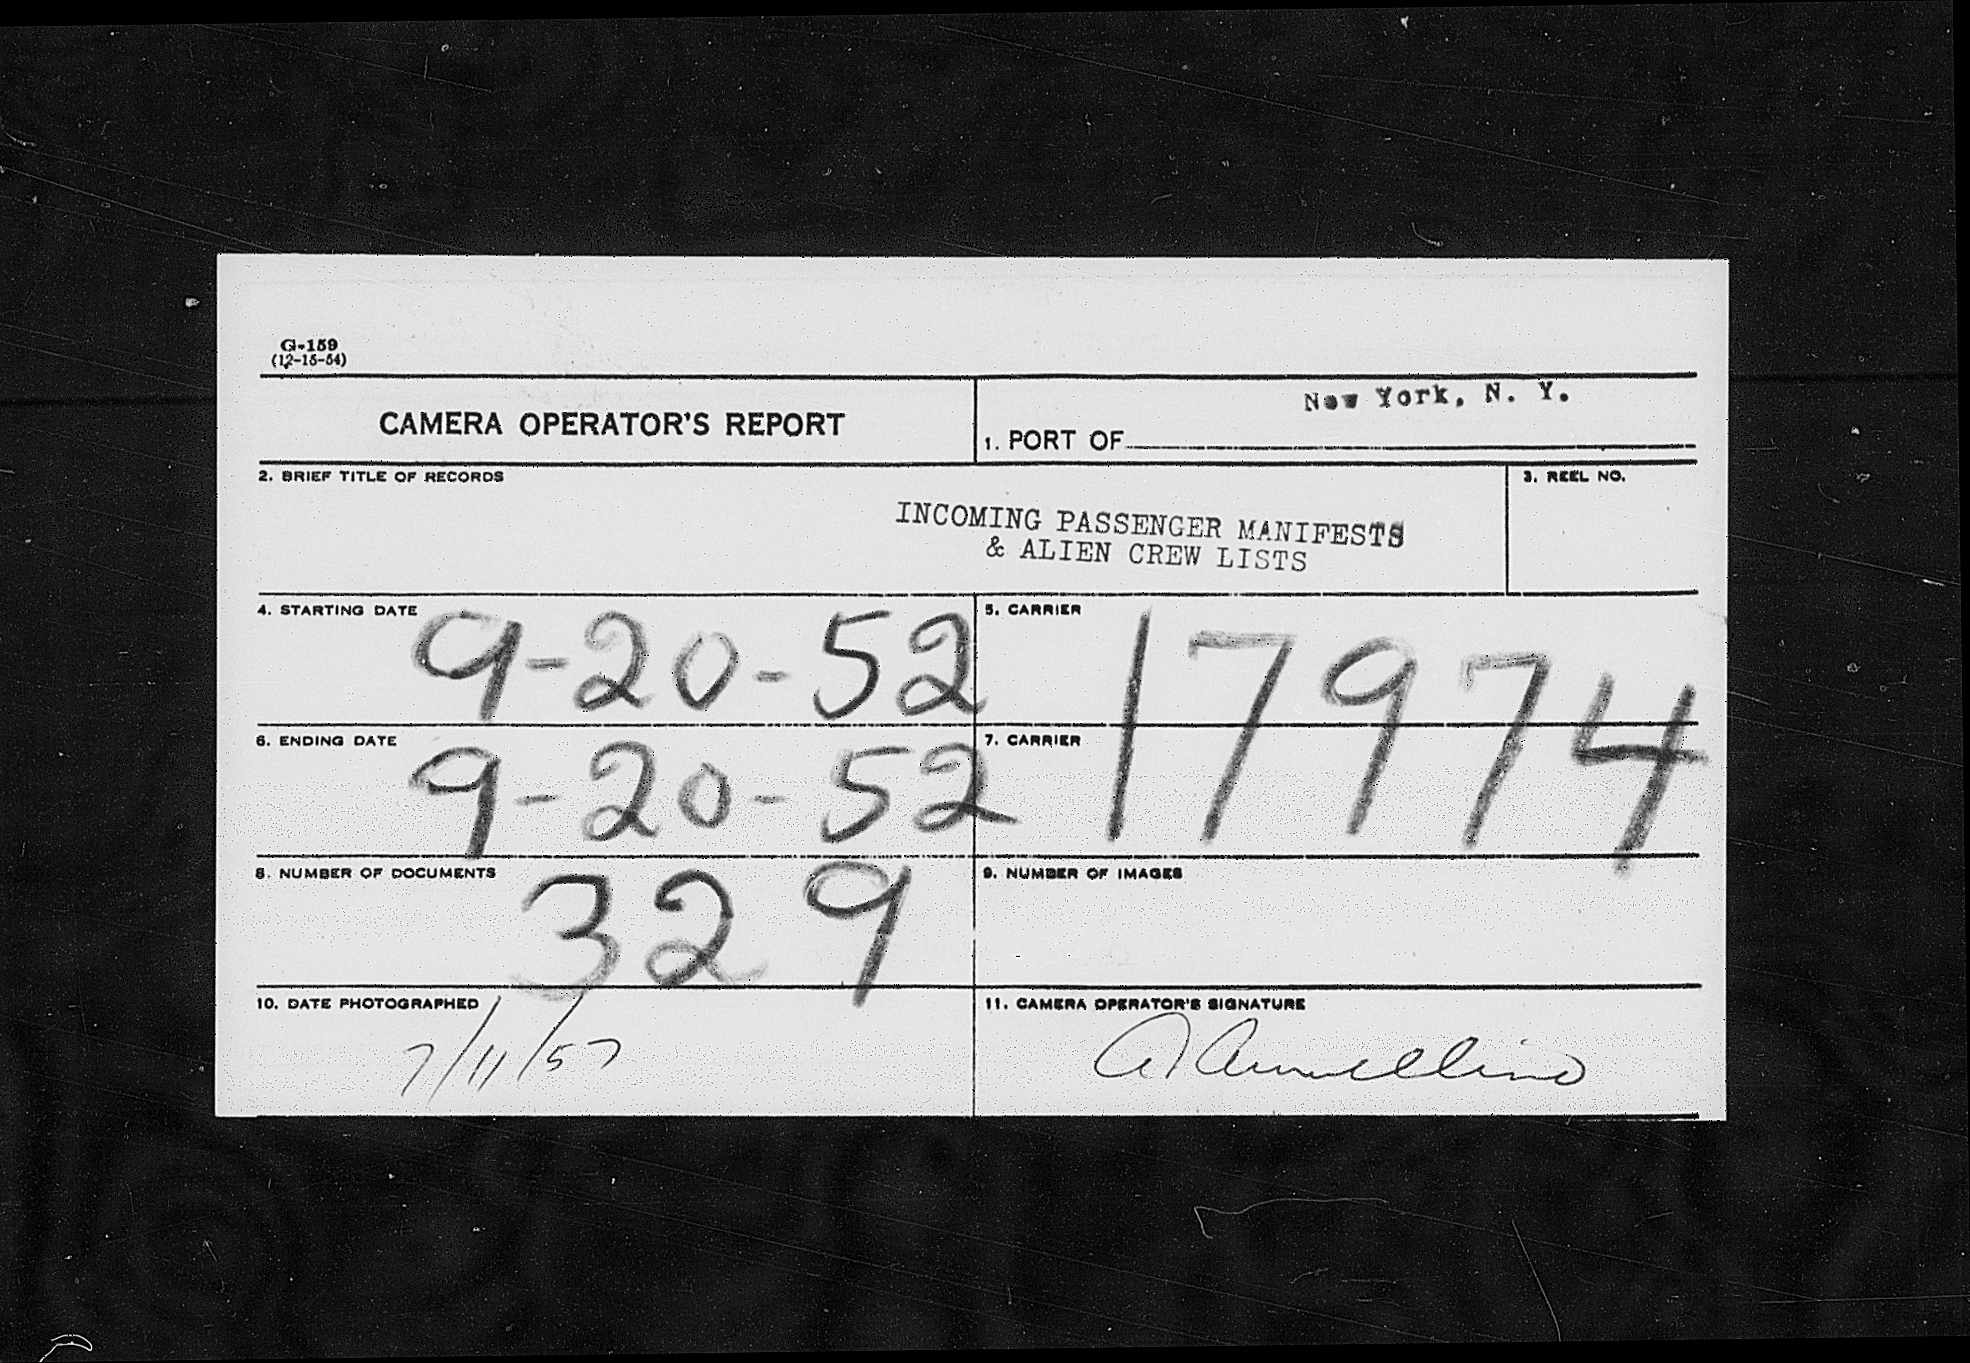 G-159
(12-15-54)
CAMERA OPERATOR'S REPORT
New York, N. Y.
1. PORT OF
2. BRIEF TITLE OF RECORDS
3. REEL NO.
INCOMING PASSENGER MANIFESTS
& ALIEN CREW LISTS
4. STARTING DATE
9-20-52
5. CARRIER
17974
6. ENDING DATE
9-20-52
7. CARRIER
8. NUMBER OF DOCUMENTS
329
9. NUMBER OF IMAGES
10. DATE PHOTOGRAPHED
7/11/57
11. CAMERA OPERATOR'S SIGNATURE